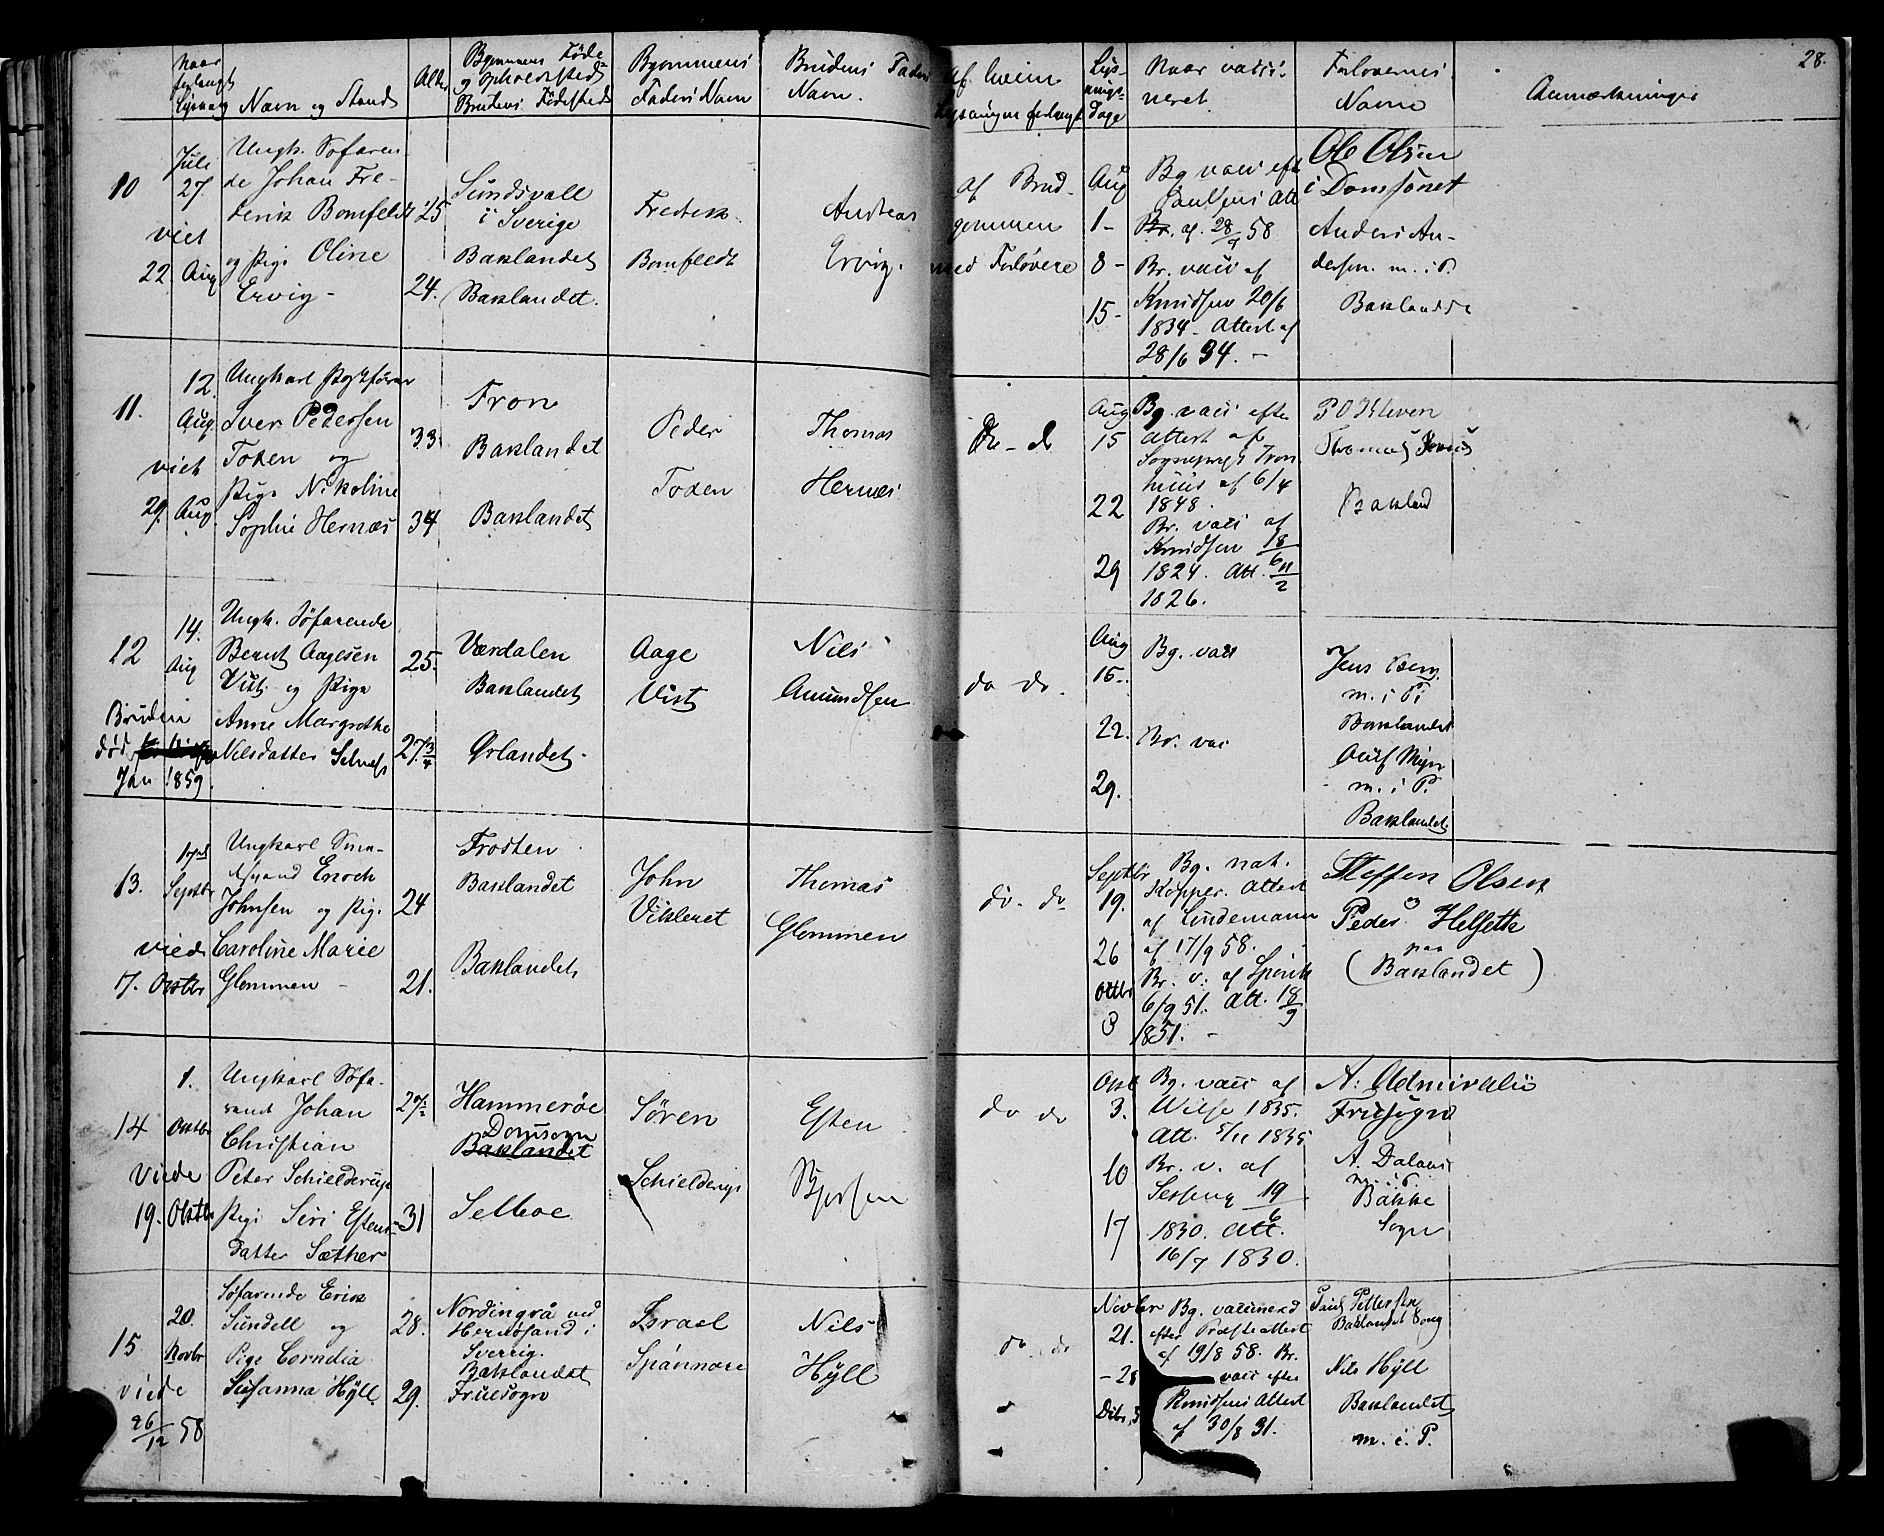 28.
Naar
forlangt
Lysning
Navn og Stand
Alder
Bgommens Føde
og Opholdssted
Brudens Fødested
Bgommens
Faders Navn
Brudens Faders
Navn.
Af hvem
Lysningen forlangt
Lys-
nings-
Dage
Naar vacci-
neret.
Forlovernes
Navne
Anmærkninger
10
Juli
27.
viet
22. Aug
Ungk. Søfaren-
de Johan Fre-
derik Bomfeldt
og Pige Oline
Ervig -
25
24.
Sundsvall
i Sverige
Baklandet
Baklandet.
Fredrik
Bomfeldt
Andreas
Ervig.
af Brud-
gommen
med Forlovere
Aug
1-
8-
15-
Bg vacc. eft
Att
Br. af. 28/9 58
Br. vacc af
Knudsen 20/6
1834. Attest af
28/6 34. -
Ole Olsen
i Domsognet
Anders An-
dersen. m. i P.
Baklandet
11.
12.
Aug
viet
29. Aug.
Ungkarl
Iver Pedersen
Toxen og
Pige Nikoline
Sophie Hernæs
33
34
Fron
Baklandet
Baklandet
Peder
Toxen
Thomas
Hernæs
Do - do
Aug
15
22
29
Bg. vacc efter
Attest af
Sognepræst
af 6/4
1848.
Br. vacc af
Knudsen 18/6
1824. Att. 11/2
1826.
Thomas
Bakland
12
14.
Aug
Bruden
død
Jan 1859.
Ungk. Søfarende
Bernt Aagesen
Vist og Pige
Anne Margrethe
Nilsdatter Selnæs
25.
27 3/4
Værdalen
Baklandet
Ørlandet.
Aage
Vist
Nils
Amundsen
do do.
Aug
15.
22.
29.
Bg. vacc
Br. vac
Jens
m. i P.
Baklandet
Oluf Myhr
m. i P.
Baklandet
13.
17de
Septbr
vied
7. Octbr
Ungkarl
Enoch
Johnsen og Pige
Caroline Marie
Glemmen -
24
21.
Frosten
Baklandet
Baklandet
John
Vikleret
Thomas
Glemmen
do. do
Septbr
19.
26
Octbr
3
Bg. nat.
Kopper. Attest
af Lindemann
af 17/9 58.
Br. v. af
6/9 51. Att. 18/9
1851. -
Steffen Olsen
Peder Helseth
paa
(Baklandet)
14
1.
Octbr
Viede
19. Oktbr
Ungkarl Søfa-
rende Johan
Christian
Peter Schielderup
Pige Siri Estens-
datter Sæther
27 1/2
31
Hammerøe
Domsogn
Baklandet
Selboe
Søren
Schielderup
Esten
do do
Oct
3.
10
17
Bg. vacc af
Wilse 1835.
Att. 5/11 1835
Br. v. af
19/6
1830. Att.
16/7 1830.
A.
Fruesogn
A. Dalaas
m. i P.
Bakke
Sogn
15
20.
Novbr
viede
26/12 58
Søfarende Erik
Sundell og
Pige Cornelia
Susanna Hÿll
28.
29.
Nordingrå ved
Hernösand i
Sverrig.
Baklandet
Fruesogn
Israel
Spånnare
Nils
Hÿll
do do
Novbr
21.
- 28
Dcbr. 5
Bg. vaccinerd
efter Præsteattest
af 19/8 58. Br.
vacc efter
Knudsens Attest
af 30/8 31.
Pettersen
Baklandet
Nils Hÿll
Baklandet
m. i. P.